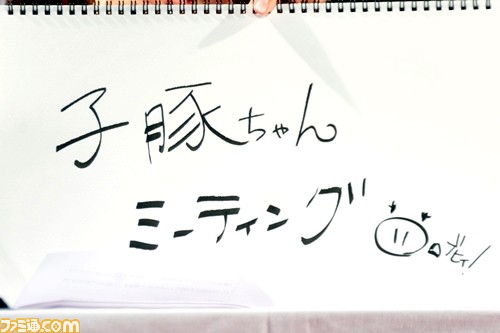 子豚ちゃん
ミーティング
ブヒィ!
ファミ通.com